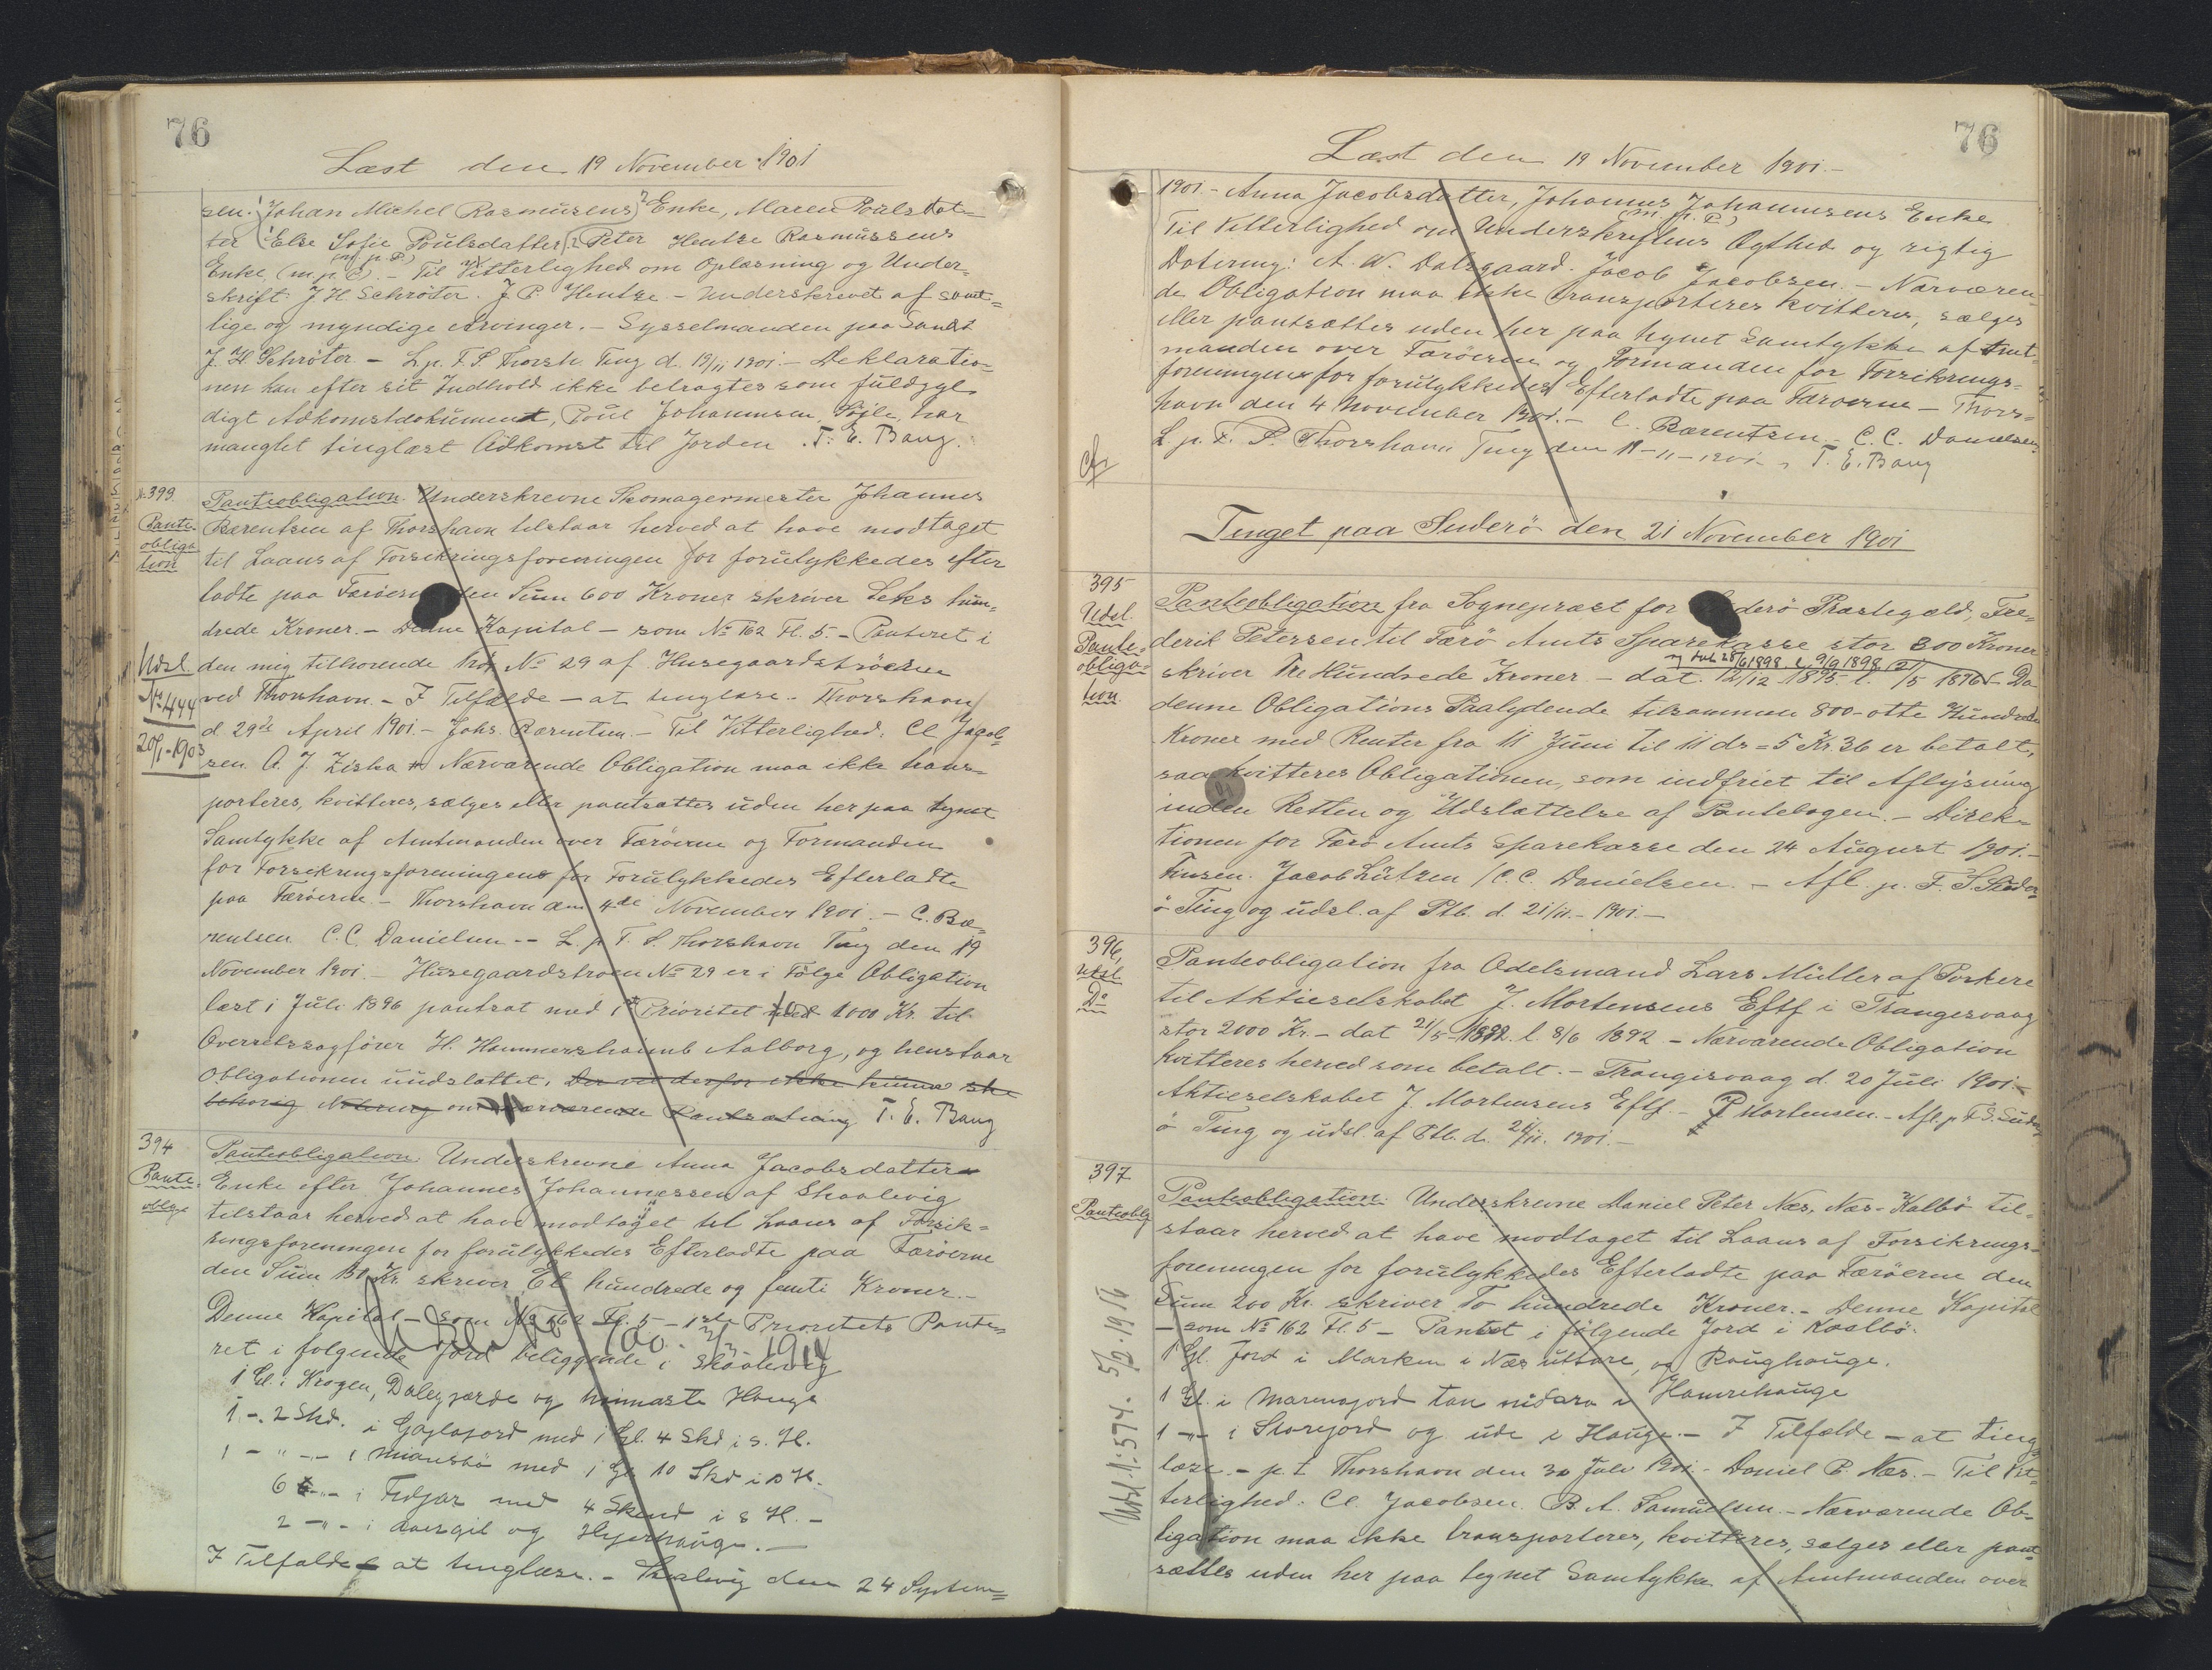 76
Læst den 19 November 1901
sen. Johan Michel Rasmusens Enke, Maren Poulsdat=
ter Else Sofie Poulsdatter Peter Hentze Rasmussens
(m. p. P.)
Enke (m. p. P). - Til Vitterlighed om Oplæsning og Under=
skrift J. H. Schröter. J. P. Hentze - Underskrevet af samt=
lige og myndige Arvinger. - Sysselmanden paa Sandø
J. H. Schröter - L. p. F. S. Thorsh. Ting d. 19/11 1901. - Deklaratio=
nen kan efter sit Indhold ikke betragtes som fuldgyl
digt Adkomstdokument, Poul Johannesen, har
manglet tinglæst Adkomst til Jorden. T. E. Bang.
№ 399
Pante
obliga
tion
Udsl.
№ 444
20/1-1903
Panteobligation. Underskrevne Skomagermester Johannes
Bærentsen af Thorshavn tilstaar herved at have modtaget
til Laans af Forsikringsforeningen for forulykkedes efter
ladte paa Færøerne den Sum 600 Kroner skriver Seks hun=
drede Kroner. - Denne Kapital - som № 162 Fl. 5. - Panteret i
den mig tilhørende Trø № 29 af Husegaardstrøerne
ved Thorshavn. - I Tilfælde - at tinglæse. - Thorshavn
d. 29de April 1901. - Johs. Bærentsen. - Til Vitterlighed: Cl. Jacob=
sen A. J. Ziska Nærværende Obligation maa ikke trans=
porteres, kvitteres, sælges eller pantsættes uden her paa tegnet
Samtykke af Amtmanden over Færöerne og Formanden
for Forsikringsforeningens for Forulykkedes Efterladte
paa Færöerne. - Thorshavn den 4de November 1901. - C. Bæ=
rentsen C. C. Danielsen -- L. p. F. S. Thorshavn Ting den 19
November 1901. - Husegaardstroen № 29 er i Følge Obligation
læst i Juli 1896 pantsat med 1ste Prioritet for 1000 Kr. til
Overretssagfører H. Hammershaimb Aalborg, og henstaar
Obligationen uudslettet. Der vil derfor ikke kunne ske
behorig Notering om nærværende Pantsætning T. E. Bang
394
Pante.
oblig.
Panteobligation. Underskrevne Anna Jacobsdatter
Enke efter Johannes Johannessen af Skaalevig
tilstaar herved at have modtaget til Laans af Forsik=
ringsforeningen for forulykkedes Efterladte paa Færöerne
den Sum 150 Kr. skriver Et hundrede og femti Kroner. -
Denne Kapital - som № 162 Fl. 5 - 1ste Prioritets Pante=
ret i følgende Jord beliggende i Skaalevig
1 Gl. i Krogen, Dalegjærde og heimaste Hauge
1 -. 2 Skd. i Gajlajord med 1 Gl. 4 Skd i s. H.
1 - " - - i Mianebö med 1 Gl 10 Skd i s H.
6 - " - i Fidjar med 4 Skind i s H. -
2 - " - i og Hejerhauge. -
I Tilfælde - at tinglæse. - Skaalevig den 24 Septem=
76
Læst den 19 November 1901. -
1901. - Anna Jacobsdatter, Johannes Johannesens Enke
(m. p. P.)
Til Vitterlighed om Underskriftens Ægthed og rigtig
Datering: A. W. Dalsgaard. Jacob Jacobsen. - Nærværen=
de Obligation maa ikke transporteres kvitteres, sælges
eller pantsættes uden her paa tegnet Samtykke af Amt=
manden over Færöerne og Formanden for Forsikrings=
foreningen for forulykkedes Efterladte paa Færöerne - Thors=
havn den 4 November 1901. - C. Bærentsen - C. C. Danielsen
L. p. F. S. Thorshavn Ting den 19-11-1901. T. E. Bang
Tinget paa Suderö den 21 November 1901
395
Udsl.
Pante=
obliga=
tion
Panteobligation fra Sognepræst for Suderö Præstegæld, Fre=
derik Petersen til Færö Amts Sparekasse stor 300 Kroner
og dat. 28/6 1898. l. 9/9 1898
skriver Tre Hundrede Kroner - dat. 12/12 1895. l. 21/5 1896 - Da
denne Obligations Paalydende tilsammen 800 - otte Hundrede
Kroner med Renter fra 11 Juni til 11 ds = 5 Kr. 36 er betalt,
saa kvitteres Obligationen, som indfriet til Aflysning
inden Retten og Udslættelse af Pantebogen. - Direk=
tionen for Færö Amts Sparekasse den 24 August 1901. -
Finsen. Jacob Lützen / C. C. Danielsen. - Afl. p. F. S. Suder
ö Ting og udsl. af Ptb. d. 21/11. - 1901. -
396,
Udsl.
Do
Panteobligation fra Odelsmand Lars Müller af Porkere
til Aktieselskabet J. Mortensens Eftf i Trangesvaag
stor 2000 Kr. - dat 21/5 - 1892. l. 8/6 1892 - Nærværende Obligation
kvitteres herved som betalt. - Trangisvaag d. 20 Juli 1901. -
Aktieselskabet J. Mortensens Eftf. - P Mortensen. - Afl. p. F. S. Suder
ö Ting og udsl. af Ptb. d. 21/11. 1901. -
397
Panteoblg
Udsl. № 574. 5/2 1916
Panteobligation. Underskrevne Daniel Peter Næs, Næs-Kalbö til=
staar herved at have modtaget til Laans af Forsikrings=
foreningen for forulykkedes Efterladte paa Færöerne den
Sum 200 Kr. skriver To hundrede Kroner. - Denne Kapital
- som № 162 Fl. 5 - Pantet i følgende Jord i Kaalbö.
1 Gl. Jord i Marken i Næs uttare, og Roughauge.
1 Gl. i Marenajord tan nidara i Hamrehauge
1 -"- i Storejord og ude i Hauge. - I Tilfælde - at ting=
læse. - p. t. Thorshavn den 30 Juli 1901 - Daniel P. Næs. - Til Vit=
terlighed: Cl. Jacobsen. B. A. Samuelsen. - Nærværende Ob=
ligation maa ikke transporteres, kvitteres, sælges eller pant=
sættes uden her paa tegnet Samtykke af Amtmanden over